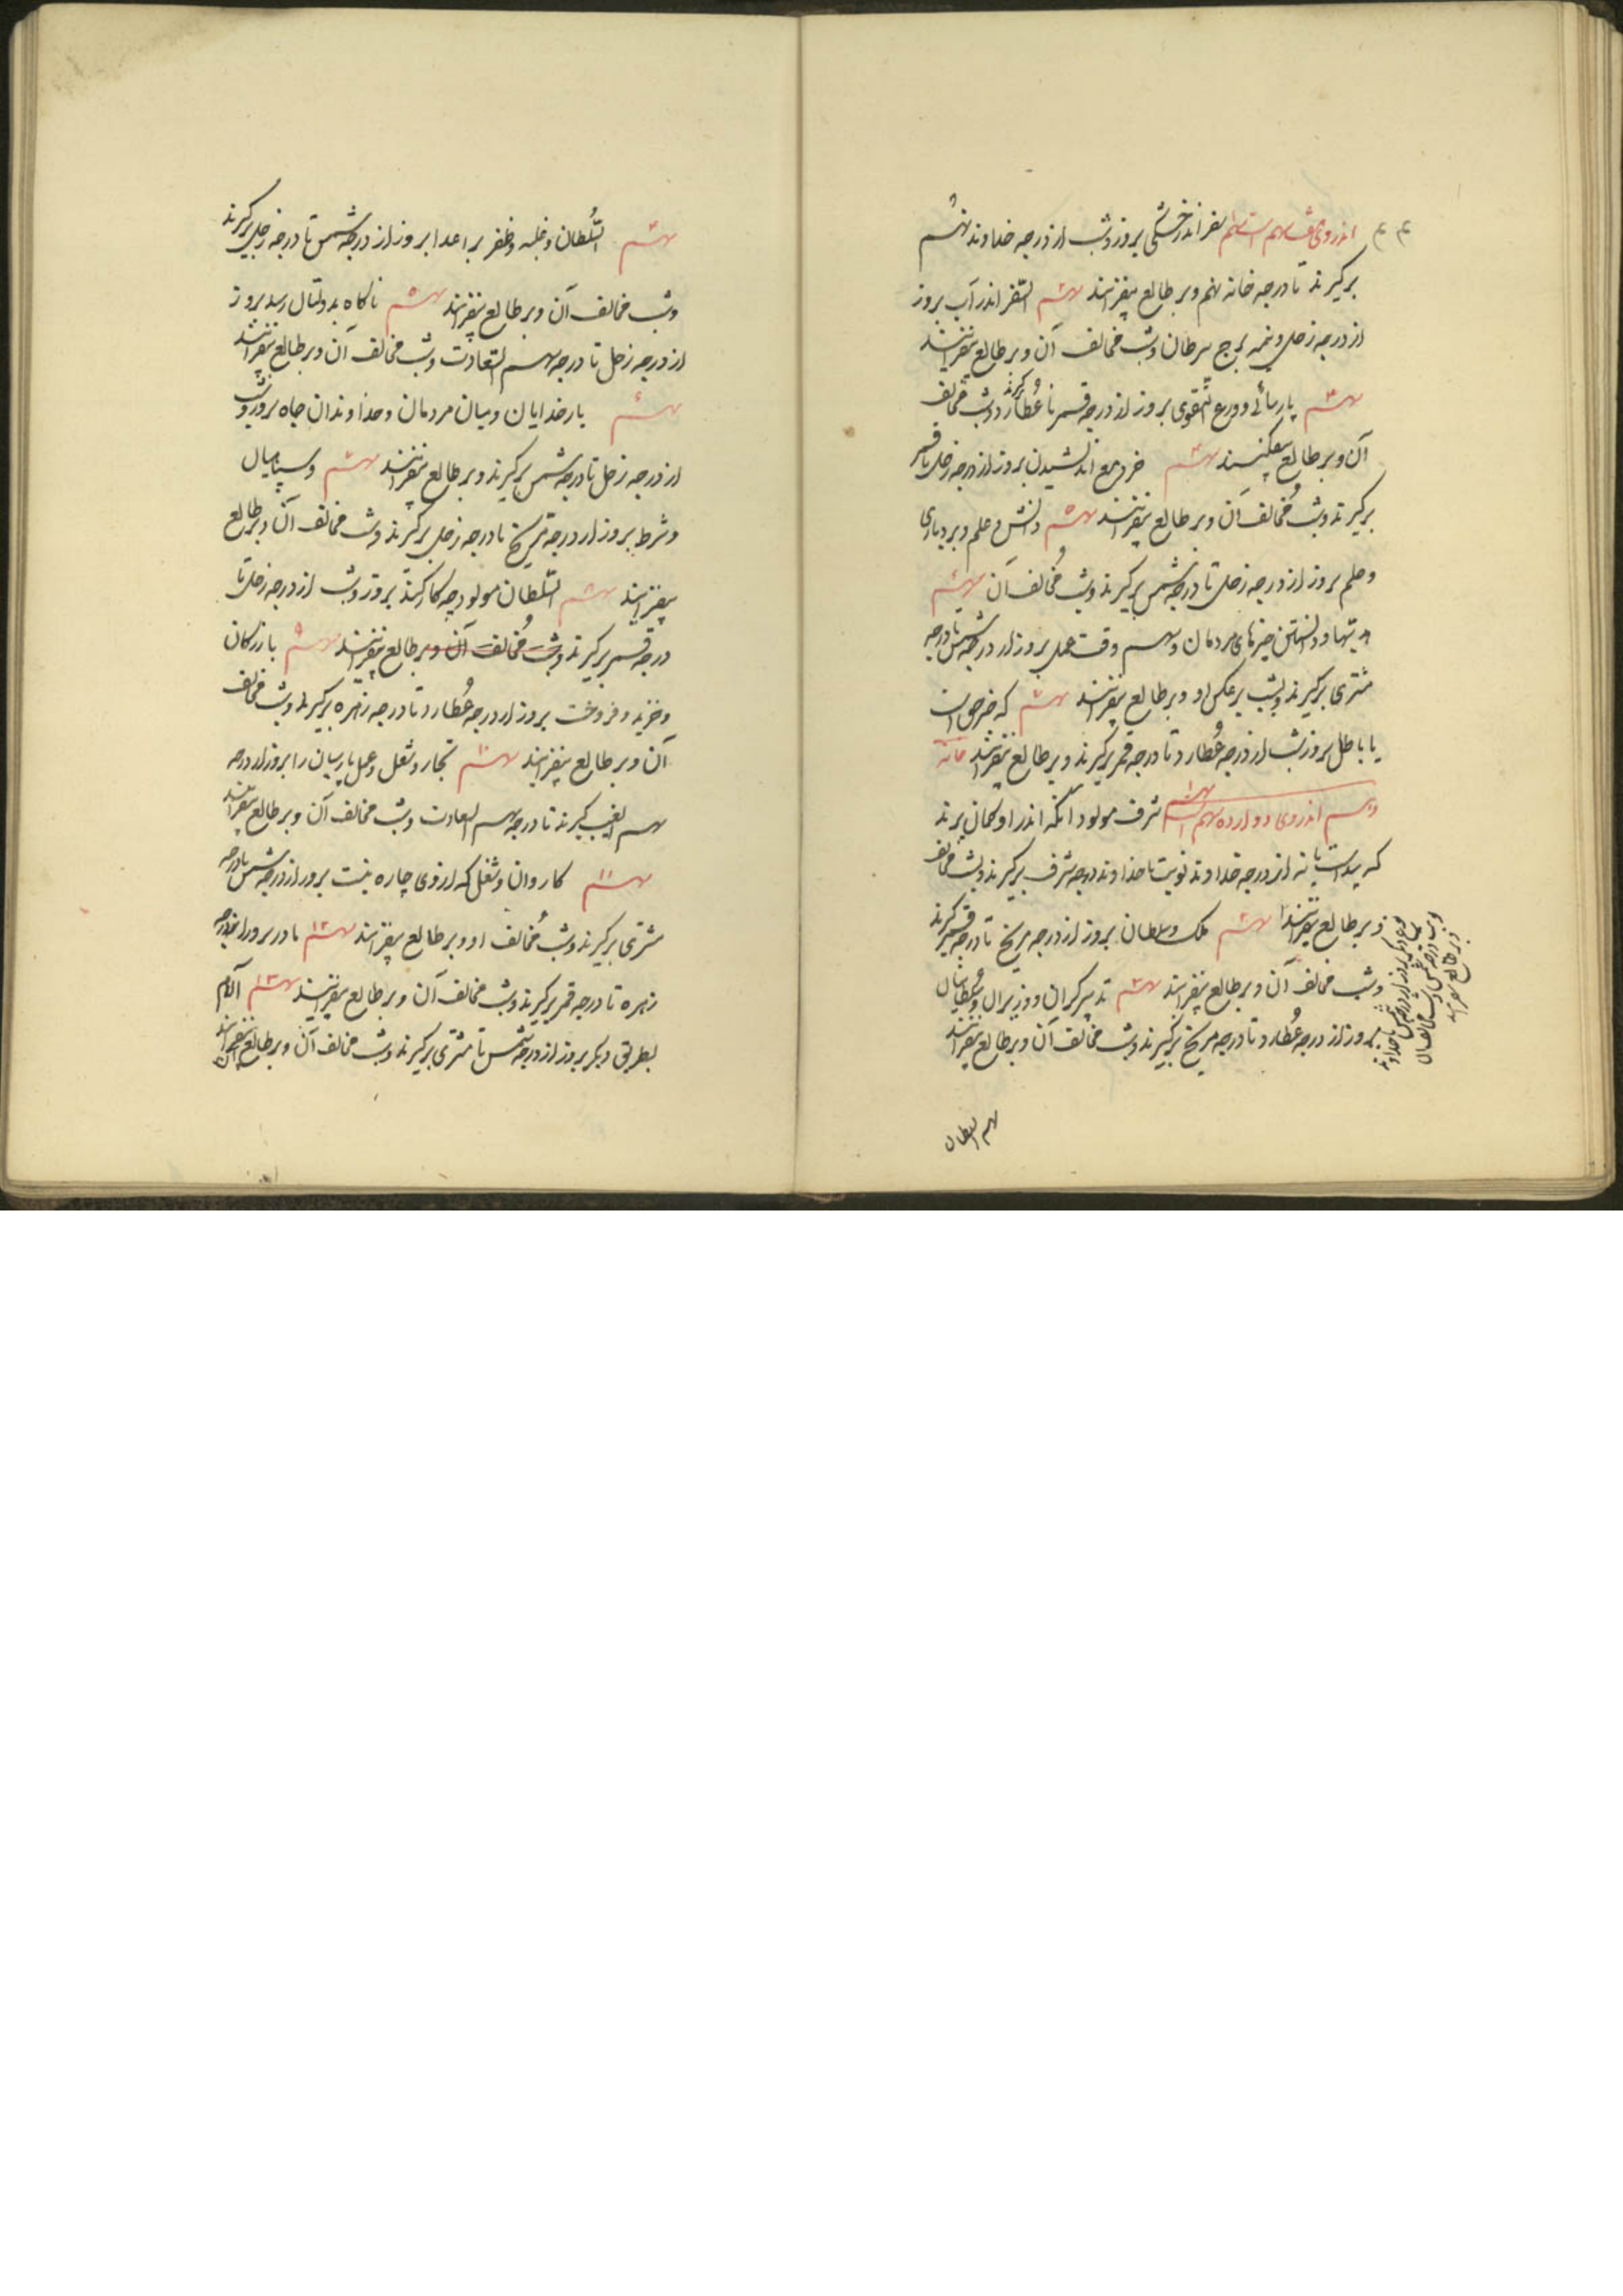 اندر وی هفت سهم است سهم ۱ سفر اندر خشکی بروز و شب از درجه خداوند نهم
برگیرند تا درجه خانه نهم و بر طالع بیفزایند سهم ۲ السفر اندر آب بروز
از درجه زحل و نیمه برج سرطان و شب مخالف آن و بر طالع بیفزایند
سهم ۳ پارسائی و ورع التقوی بروز از درجه قمر تا عُطارد گیرند و شب مخالف
آن و بر طالع بیفکنند سهم ۴ خرد مع اندیشیدن بروز از درجه زحل تا قمر
برگیرند و شب مُخالف آن و بر طالع بیفزایند سهم ۵ دانش و علم و بردباری
و حلم بروز از درجه زحل تا درجه شمس برگیرند و شب مُخالف آن سهم ۶
و دانستن خبرهای مردمان و سهم وقت عمل بروز از درجه شمس تا درجه
مشتری برگیرند و شب برعکس او و بر طالع بیفزایند سهم ۷ که خبر حق است
یا باطل بروز و شب از درجه عُطارد تا درجه قمر برگیرند و بر طالع بیفزایند خانه
دهم اندر وی دوازده سهم است سهم ۱ شرف مولود آنکه اندر او گمان برند
که پدر است یا نه از درجه خداوند نوبت تا خداوند درجه شرف برگیرند و شب مخالف
و بر طالع بیفزایند سهم ۲ ملک و سلطان بروز از درجه مریخ تا درجه قمر گیرند
و شب مخالف آن و بر طالع بیفزایند سهم ۳ تدبیرگران و وزیران و سُلطانان
بروز از درجه عُطارد تا درجه مریخ برگیرند و شب مخالف آن و بر طالع بیفزایند
و بر طالع بیفزایند
سهم السلطان
سهم ۴ السُلطان و غلبه و ظفر بر اعدا بروز از درجه شمس تا درجه زحل برگیرند
و شب مخالف آن و بر طالع بیفزایند سهم ۵ ناگاه بدولتان رسد بروز
از درجه زحل تا درجه سهم السعادت و شب مخالف آن و بر طالع بیفزایند
سهم ۶ بارخدایان و میان مردمان و خداوندان جاه بروز و شب
از درجه زحل تا درجه شمس برگیرند و بر طالع بیفزایند سهم ۷ و سپاهیان
و شرط بروز از درجه مریخ تا درجه زحل برگیرند و شب مخالف آن و بر طالع
بیفزایند سهم ۸ السُلطان مولود چه کار کند بروز و شب از درجه زحل تا
درجه قمر برگیرند و شب مُخالف آن و بر طالع بیفزایند سهم ۹ بازرگان
و خرید و فروخت بروز از درجه عُطارد تا درجه زهره برگیرند و شب مخالف
آن و بر طالع بیفزایند سهم ۱۰ تجار و شغل و عمل پارسیان را بروز از درجه
سهم الغیب گیرند تا درجه سهم السعادت و شب مخالف آن و بر طالع بیفزایند
سهم ۱۱ کاروان و شغل که از وی چاره نیست بروز از درجه شمس تا درجه
مشتری برگیرند و شب مُخالف او و بر طالع بیفزایند سهم ۱۲ مادر بروز از درجه
زهره تا درجه قمر برگیرند و شب مخالف آن و بر طالع بیفزایند سهم ۱۳ الام
بطریق دیگر بروز از درجه شمس تا مشتری برگیرند و شب مخالف آن و بر طالع بیفزایند